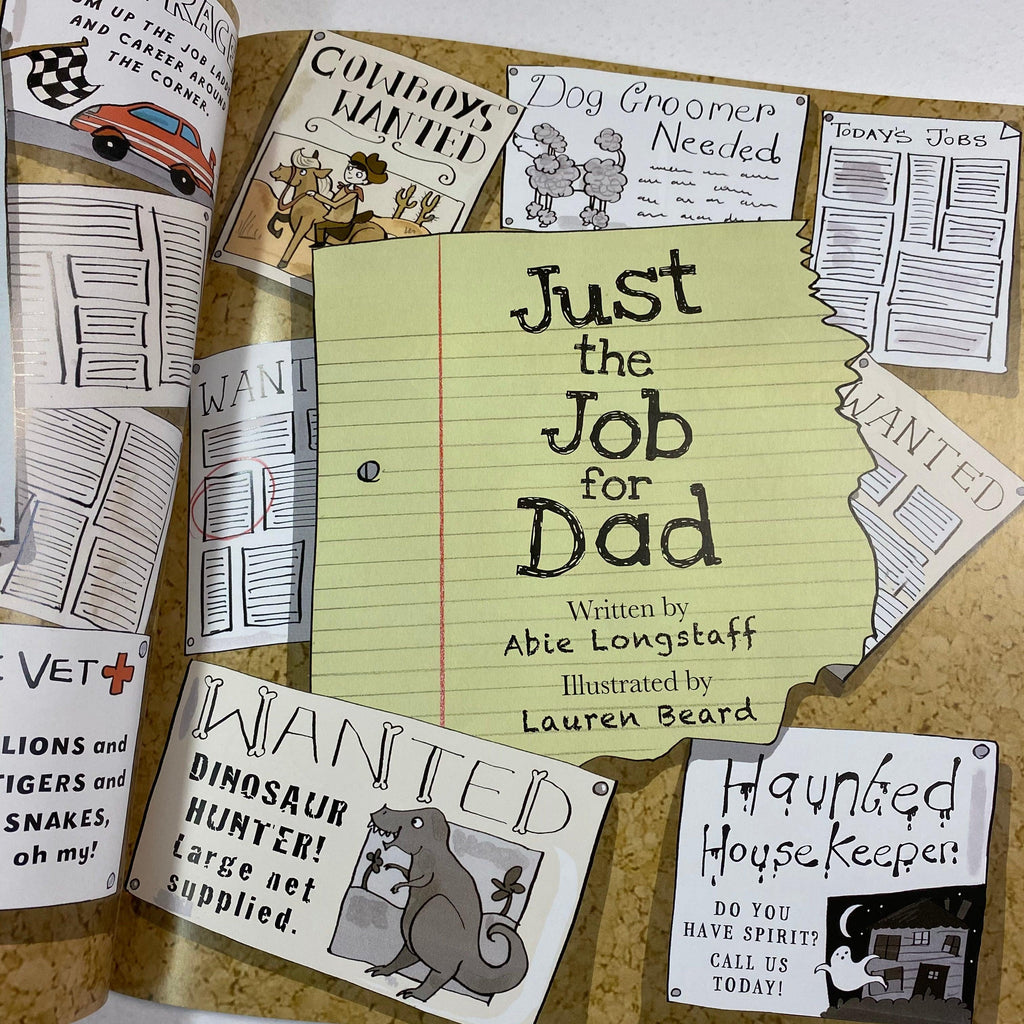 UP THE JOB
AND CAREER AROUND
THE CORNER.
COWBOYS
WANTED
Dog Groomer
Needed
TODAY'S JOBS
Just
the
Job
for
Dad
Written by
Abie Longstaff
Illustrated by
Lauren Beard
WANT
WANTED
VET
LIONS and
TIGERS and
SNAKES,
oh my!
WANTED
DINOSAUR
HUNTER!
Large net
supplied.
Haunted
HouseKeeper
DO YOU
HAVE SPIRIT?
CALL US
TODAY!